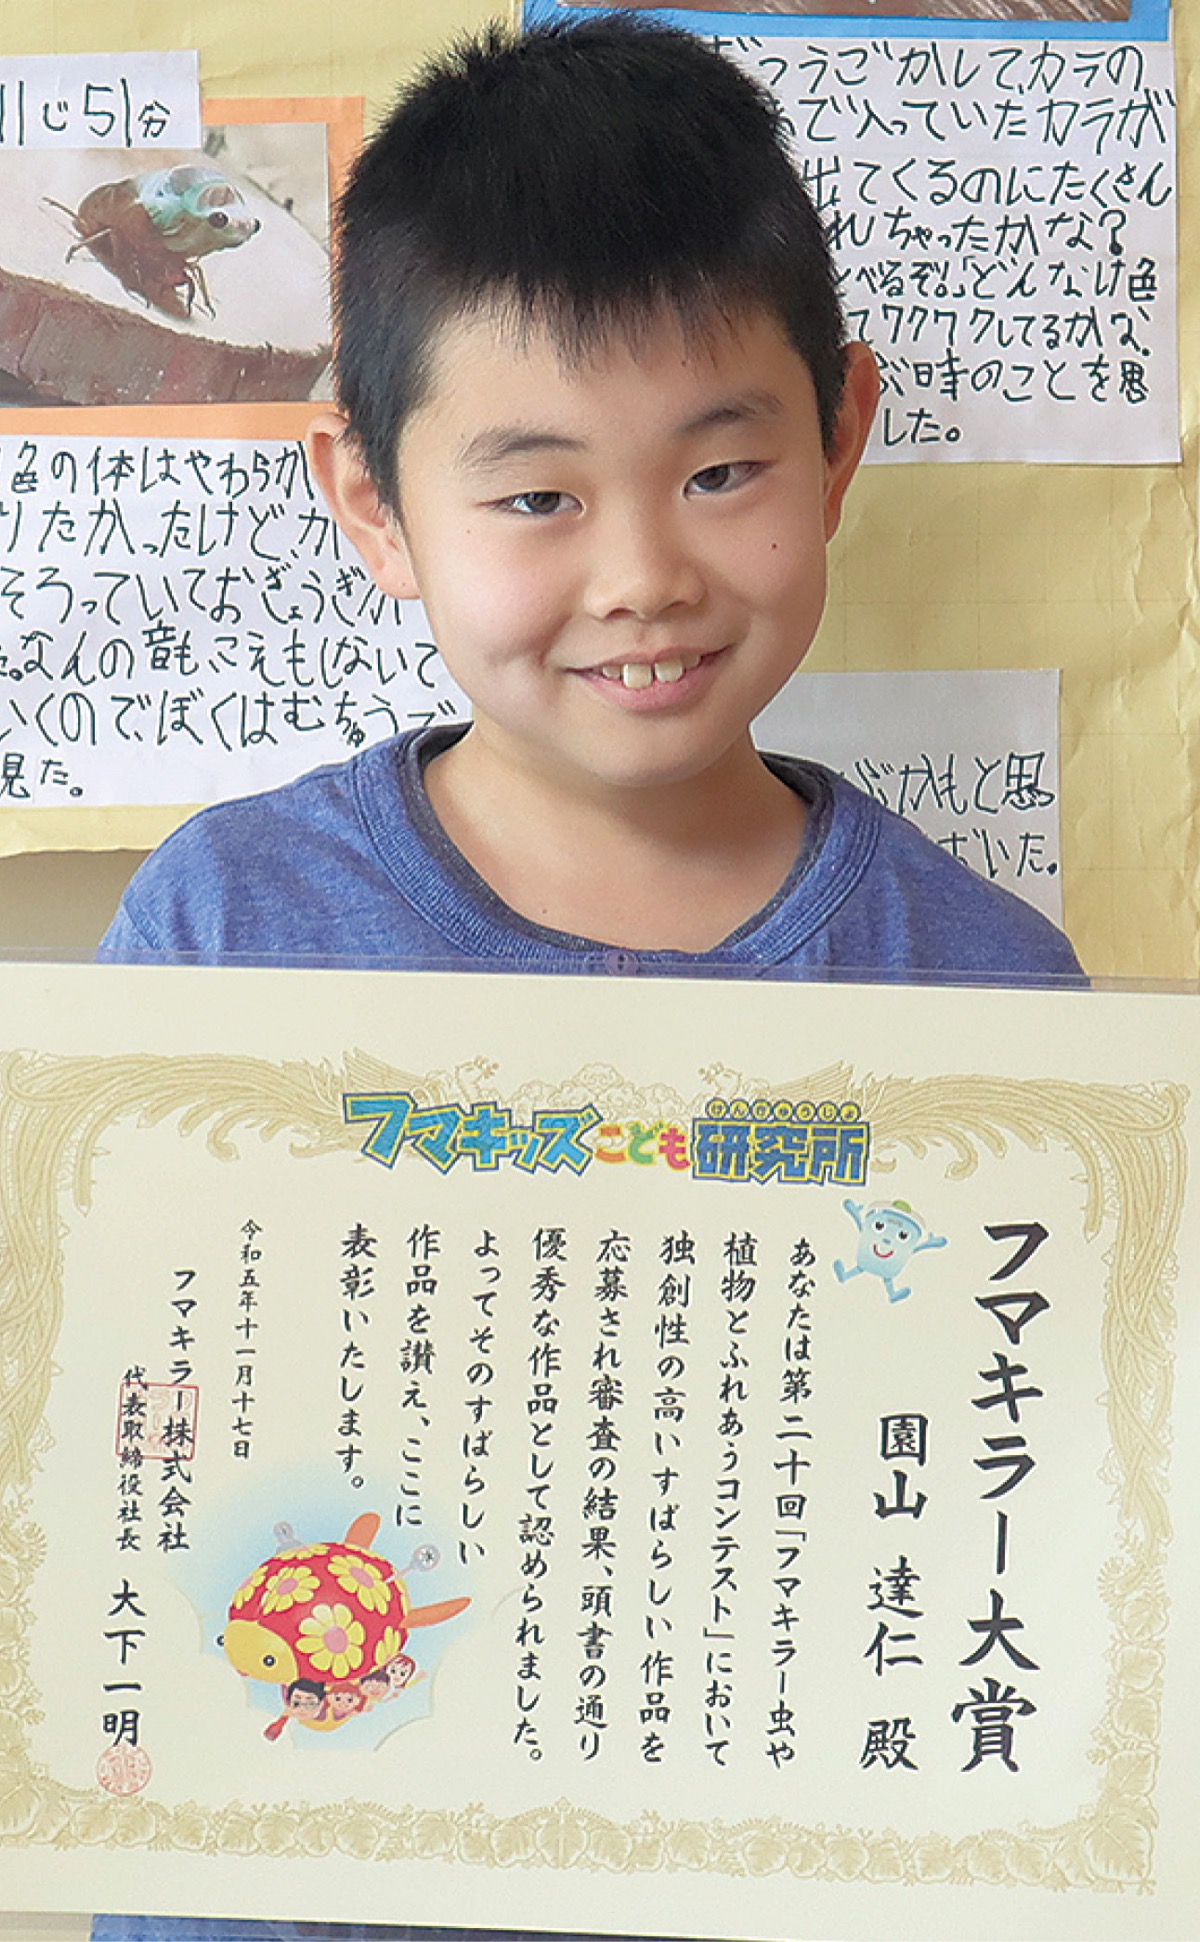 11じ51分
づうごかして、カラの
で入っていたカラが
出てくるのにたくさん
れちゃったかな?
べるぞ!。」「どんなけ色
てワクワクしてるかな、
ぶ時のことを思
した。
色の体はやわらか
りたかったけど、か
そろっていておぎょうぎが
なんの音も、こえもしないで
いくので、ぼくはむちゅうで
見た。
ぶかもと思
おいた。
フマキッズこども研究所
けんきゅうじょ
フマキラー大賞
園山 達仁 殿
あなたは第二十回「フマキラー虫や
植物とふれあうコンテスト」において
独創性の高いすばらしい作品を
応募され審査の結果、頭書の通り
優秀な作品として認められました。
よってそのすばらしい
作品を讃え、ここに
表彰いたします。
令和五年十一月十七日
フマキラー株式会社
代表取締役社長 大下一明